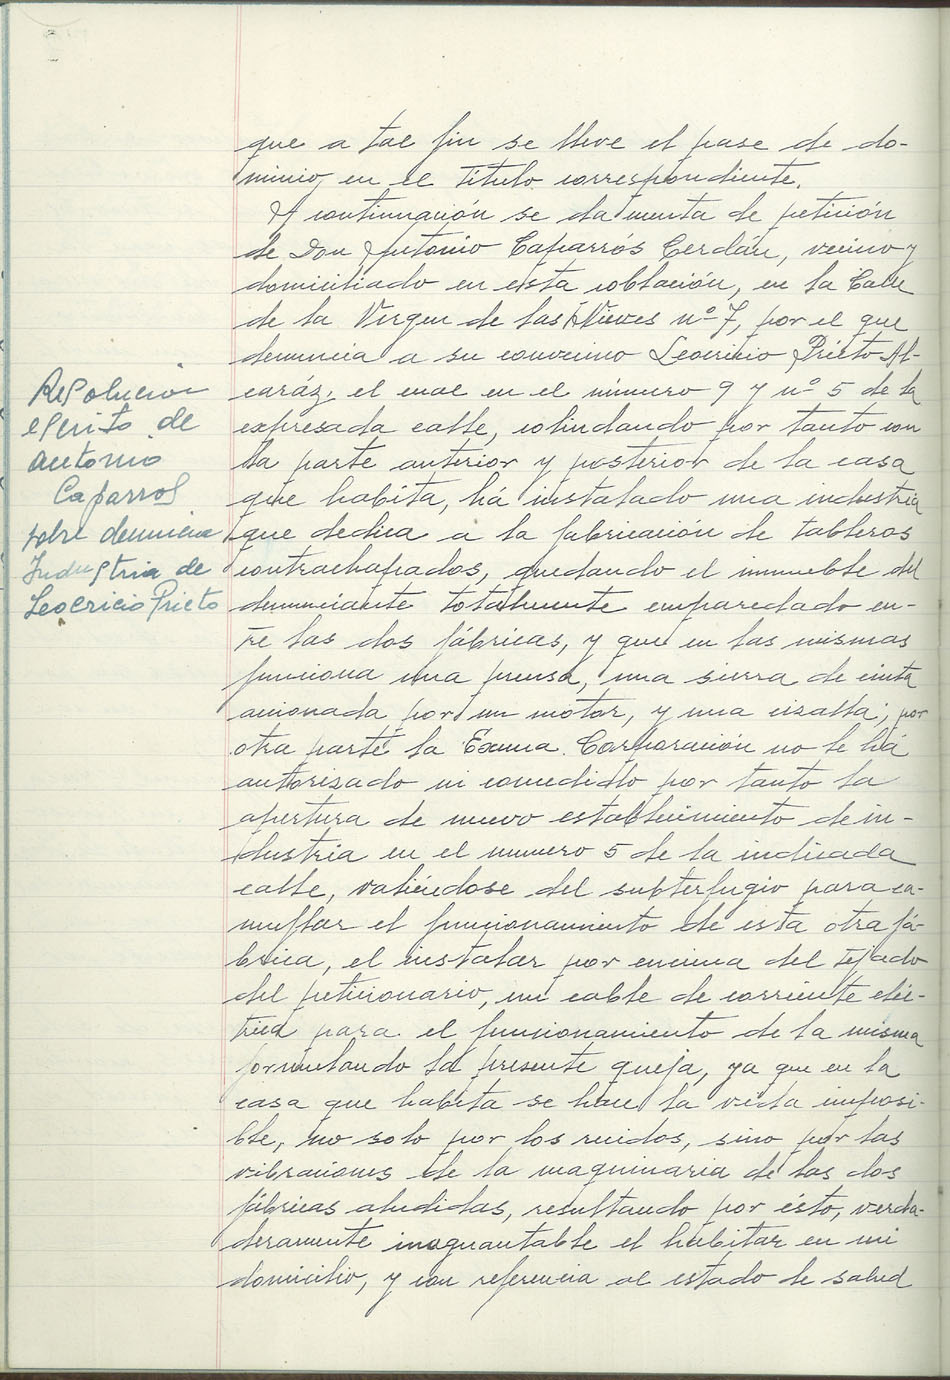 que a tal fin se lleve el pase de do-
minio, en el título correspondiente.
A continuación se da cuenta de petición
de Don Antonio Caparrós Cerdán, vecino y
domiciliado en esta población, en la Calle
de la Virgen de las Nieves nº 7, por el que
denuncia a su convecino Leocricio Prieto Al-
caráz, el cual en el número 9 y nº 5 de la
expresada calle, colindando por tanto con
la parte anterior y posterior de la casa
que habita, há instalado una industria
que dedica a la fabricación de tableros
contrachapados, quedando el inmueble del
denunciante totalmente emparedado en-
tre las dos fábricas, y que en las mismas
funciona una prensa, una sierra de cinta
accionada por un motor, y una cizalla; por
otra parte la Excma. Corporación no le há
autorizado ni concedido por tanto la
apertura de nuevo establecimiento de in-
dustria en el numero 5 de la indicada
calle, valiéndose del subterfugio para ca-
muflar el funcionamiento de esta otra fá-
brica, el instalar por encima del tejado
del peticionario, un cable de corriente eléc-
trica para el funcionamiento de la misma
formulando la presente queja, ya que en la
casa que habita se hace la vida imposi-
ble, no solo por los ruidos, sino por las
vibraciones de la maquinaria de las dos
fábricas aludidas, resultando por ésto, verda-
deramente inaguantable el habitar en mi
domicilio, y con referencia al estado de salud
Resolucion
escrito de
Antonio
Caparros
sobre denuncia
Industria de
Leocricio Prieto